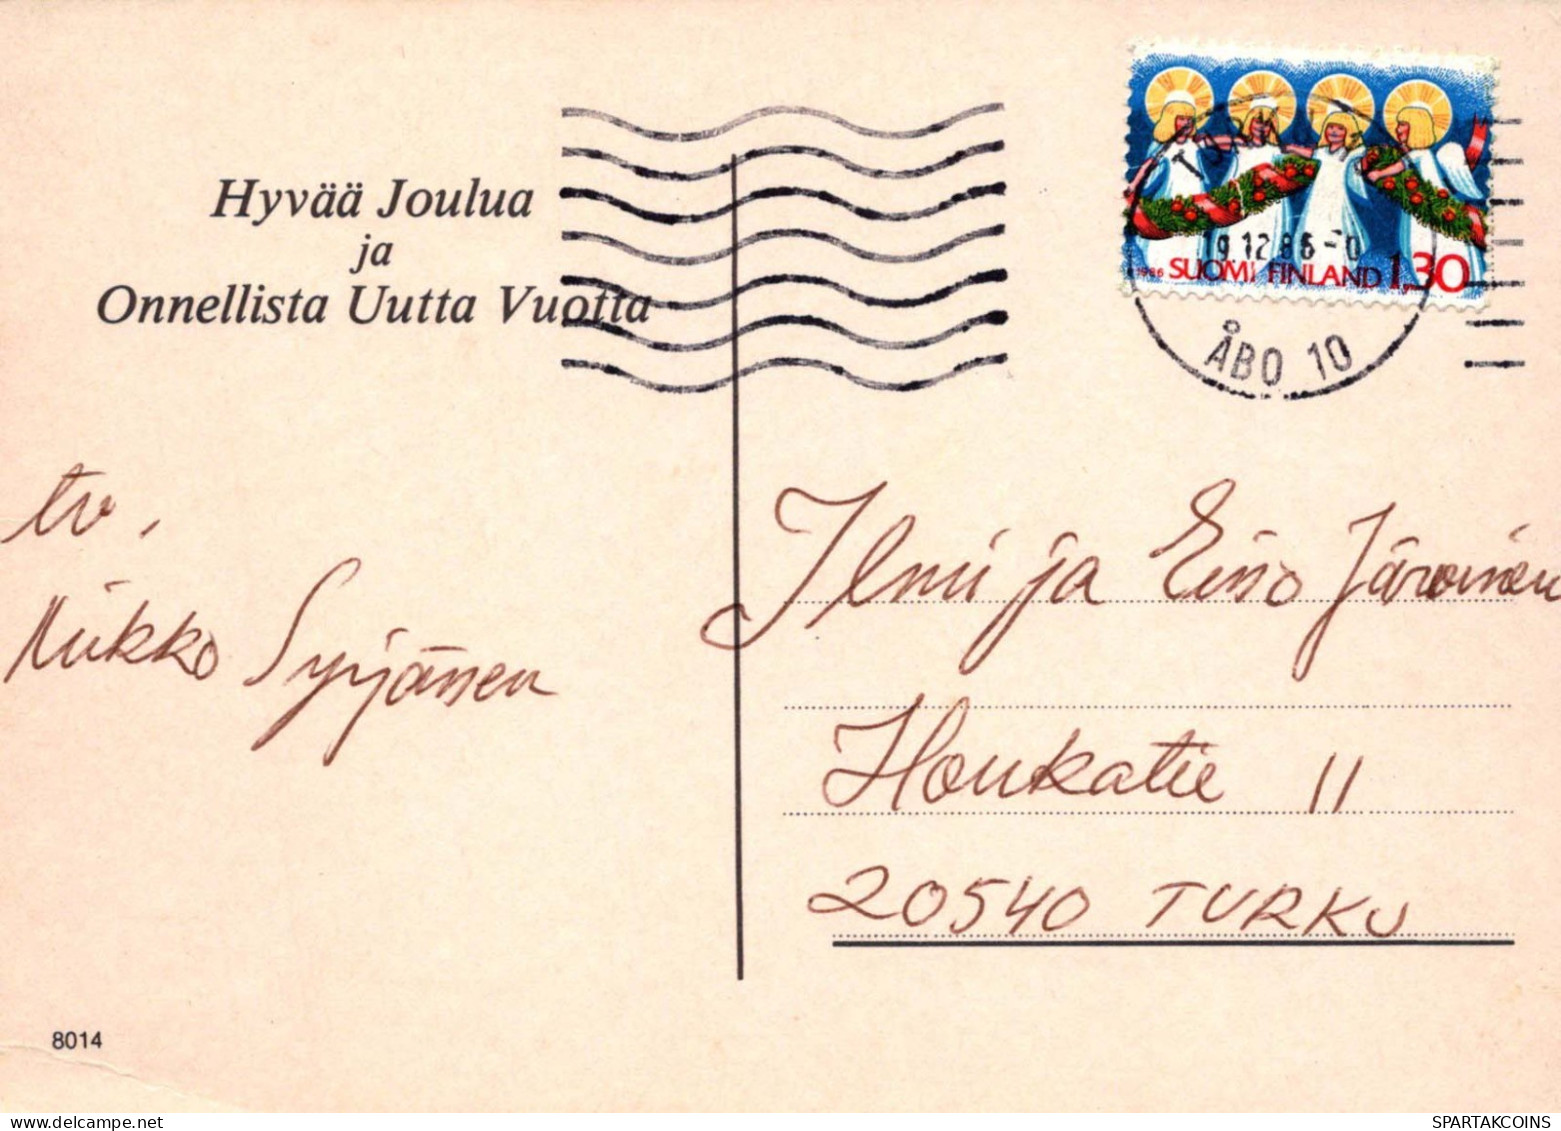 Hyvää Joulua
ja
Onnellista Uutta Vuotta
TURKU
19.12.86-
ÅBO 10
1986 SUOMI FINLAND 1,30
tv.
Miikko Syrjänen
Ilmi ja Eino Järvinen
Honkatie 11
20540 TURKU
8014
SPARTAKCOINS